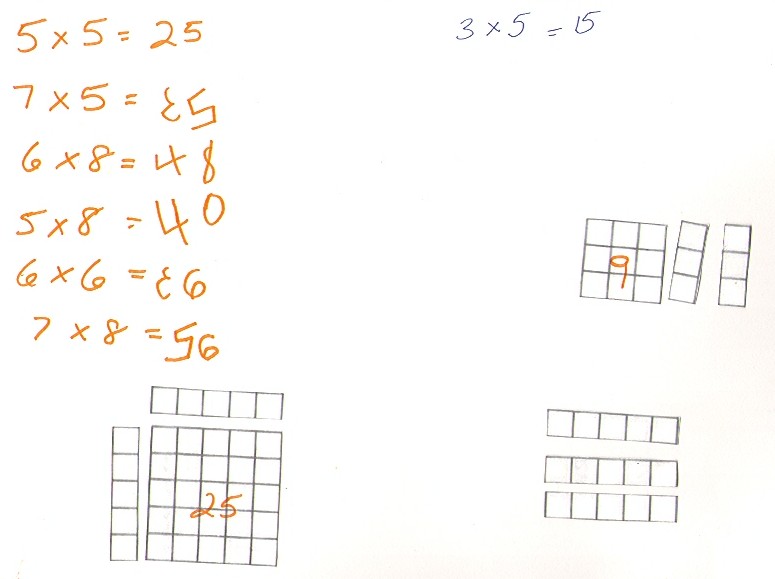 5 × 5 = 25
7 × 5 = 35
6 × 8 = 48
5 × 8 = 40
6 × 6 = 36
7 × 8 = 56
3 × 5 = 15
9
25